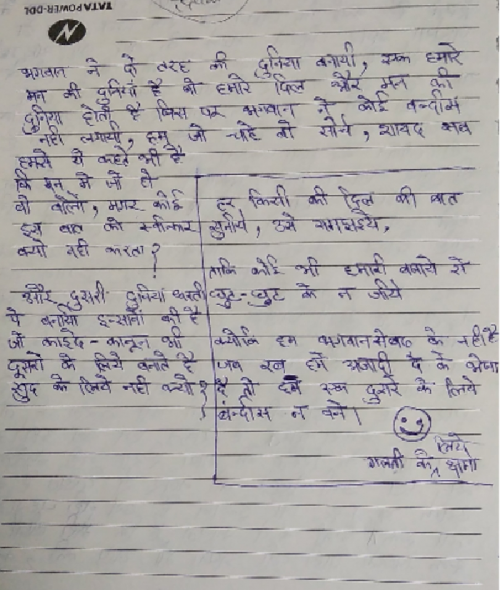 TATA POWER-DDL
भगवान ने दो तरह की दुनिया बनायी, एक हमारे
मन की दुनिया है वो हमारे दिल और मन की
दुनिया होती है जिस पर भगवान ने कोई बन्दीस
नही लगायी, हम जो चाहे वो सोचे, शायद सब
हमसे ये कहते भी है
कि मन मे जो हो
वो बोलो, मगर कोई
इस बात को स्वीकार
क्यो नही करता?
और दुसरी दुनिया धरती
पे बनाया इन्सानो की है
जो काइदे-कानून भी
दूसरो के लिये बनाते है
खुद के लिये नही क्यो?
हर किसी की दिल की बात
सुनीये, उसे समझइये,
ताकि कोई भी हमारी वजाये से
घुट-घुट के न जीये
क्योकि हम भगवान से बढ के नही है
जब रब हमे अजादी दे के भेजा
है तो हमे एक दुसरे के लिये
बन्दीस न बने।
गलती के लिये क्षमा